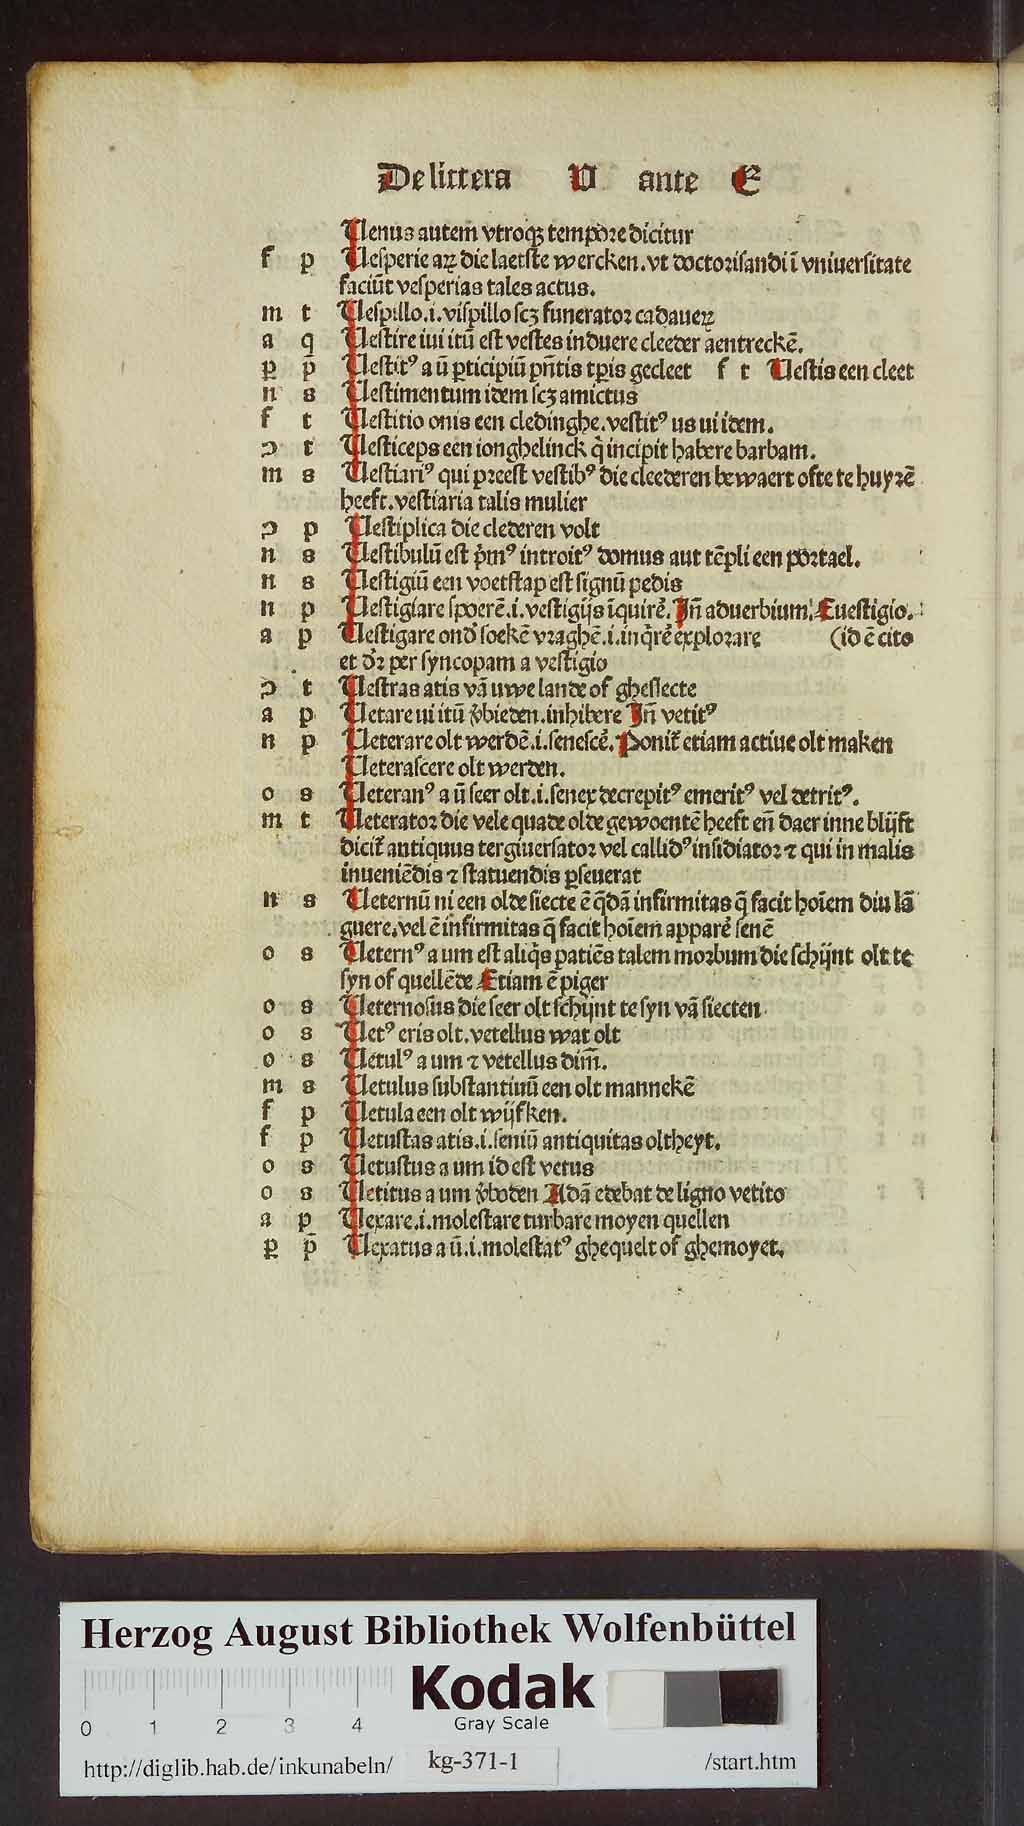 De littera V ante E
Venus autem vtroqꝫ tempore dicitur
f p Vesperie aꝝ die laetste wercken. vt doctorisandi ī vniuersitate
faciūt vesperias tales actus.
m t Vespillo .i. vispillo scꝫ funerator cadaueꝝ
a q Vestire iui itū est vestes induere cleeder aentreckē.
ꝑ p̄ Vestitꝰ a ū ꝑticipiū pn̄tis tꝑis gecleet f t Vestis een cleet
n s Vestimentum idem scꝫ amictus
f t Vestitio onis een cledinghe. vestitꝰ us ui idem.
ↄ t Vesticeps een ionghelinck q̇ incipit habere barbam.
m s Vestiariꝰ qui preest vestibꝰ die cleederen bewaert ofte te huyrē
heeft. vestiaria talis mulier
ↄ p Vestiplica die clederen volt
n s Vestibulū est p̊mꝰ introitꝰ domus aut tēpli een portael.
n s Vestigiū een voetstap est signū pedis
n p Vestigiare spoerē .i. vestigijs īquirē. Jn̄ aduerbium. Euestigio.
a p Vestigare ond' soekē vraghē .i. inq̇rē explorare (id ē cito
et dr̄ per syncopam a vestigio
ↄ t Vestras atis vā uwe lande of gheslecte
a p Vetare ui itū v̊bieden. inhibere Jn̄ vetitꝰ
n p Veterare olt werdē .i. senescē. Ponit᷑ etiam actiue olt maken
Veterascere olt werden.
o s Veteranꝰ a ū seer olt .i. senex decrepitꝰ emeritꝰ vel detritꝰ.
m t Veterator die vele quade olde gewoentē heeft en̄ daer inne blijft
dicit᷑ antiquus tergiuersator vel callidꝰ insidiator ⁊ qui in malis
inueniēdis ⁊ statuendis ꝑseuerat
n s Veternū ni een olde siecte ē q̄dā infirmitas q̄ facit hoīem diu lā
guere. vel ē infirmitas q̄ facit hoīem apparē senē
o s Veternꝰ a um est aliq̇s patiēs talem morbum die schijnt olt te
syn of quellēde Etiam ē piger
o s Veternosus die seer olt schijnt te syn vā siecten
o s Vetꝰ eris olt. vetellus wat olt
o s Vetulꝰ a um ⁊ vetellus dim̄.
m s Vetulus substantiuū een olt mannekē
f p Vetula een olt wijfken.
f p Vetustas atis .i. seniū antiquitas oltheyt.
o s Vetustus a um id est vetus
o s Vetitus a um v̊boden Adā edebat de ligno vetito
a p Vexare .i. molestare turbare moyen quellen
ꝑ p̄ Vexatus a ū .i. molestatꝰ ghequelt of ghemoyet.
Herzog August Bibliothek Wolfenbüttel
Kodak
Gray Scale
0 1 2 3 4
http://diglib.hab.de/inkunabeln/ kg-371-1 /start.htm